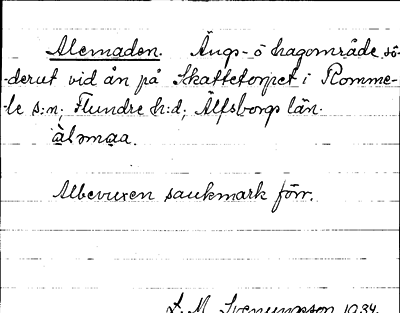 Alemaden. Ängs- o hagområde sö-
derut vid ån på Skattetorpet i Romme-
le s:n; Flundre h:d; Älfsborgs län.
àlmaa.
Albevuxen sankmark förr.
L. M. Svenungsson 1934.